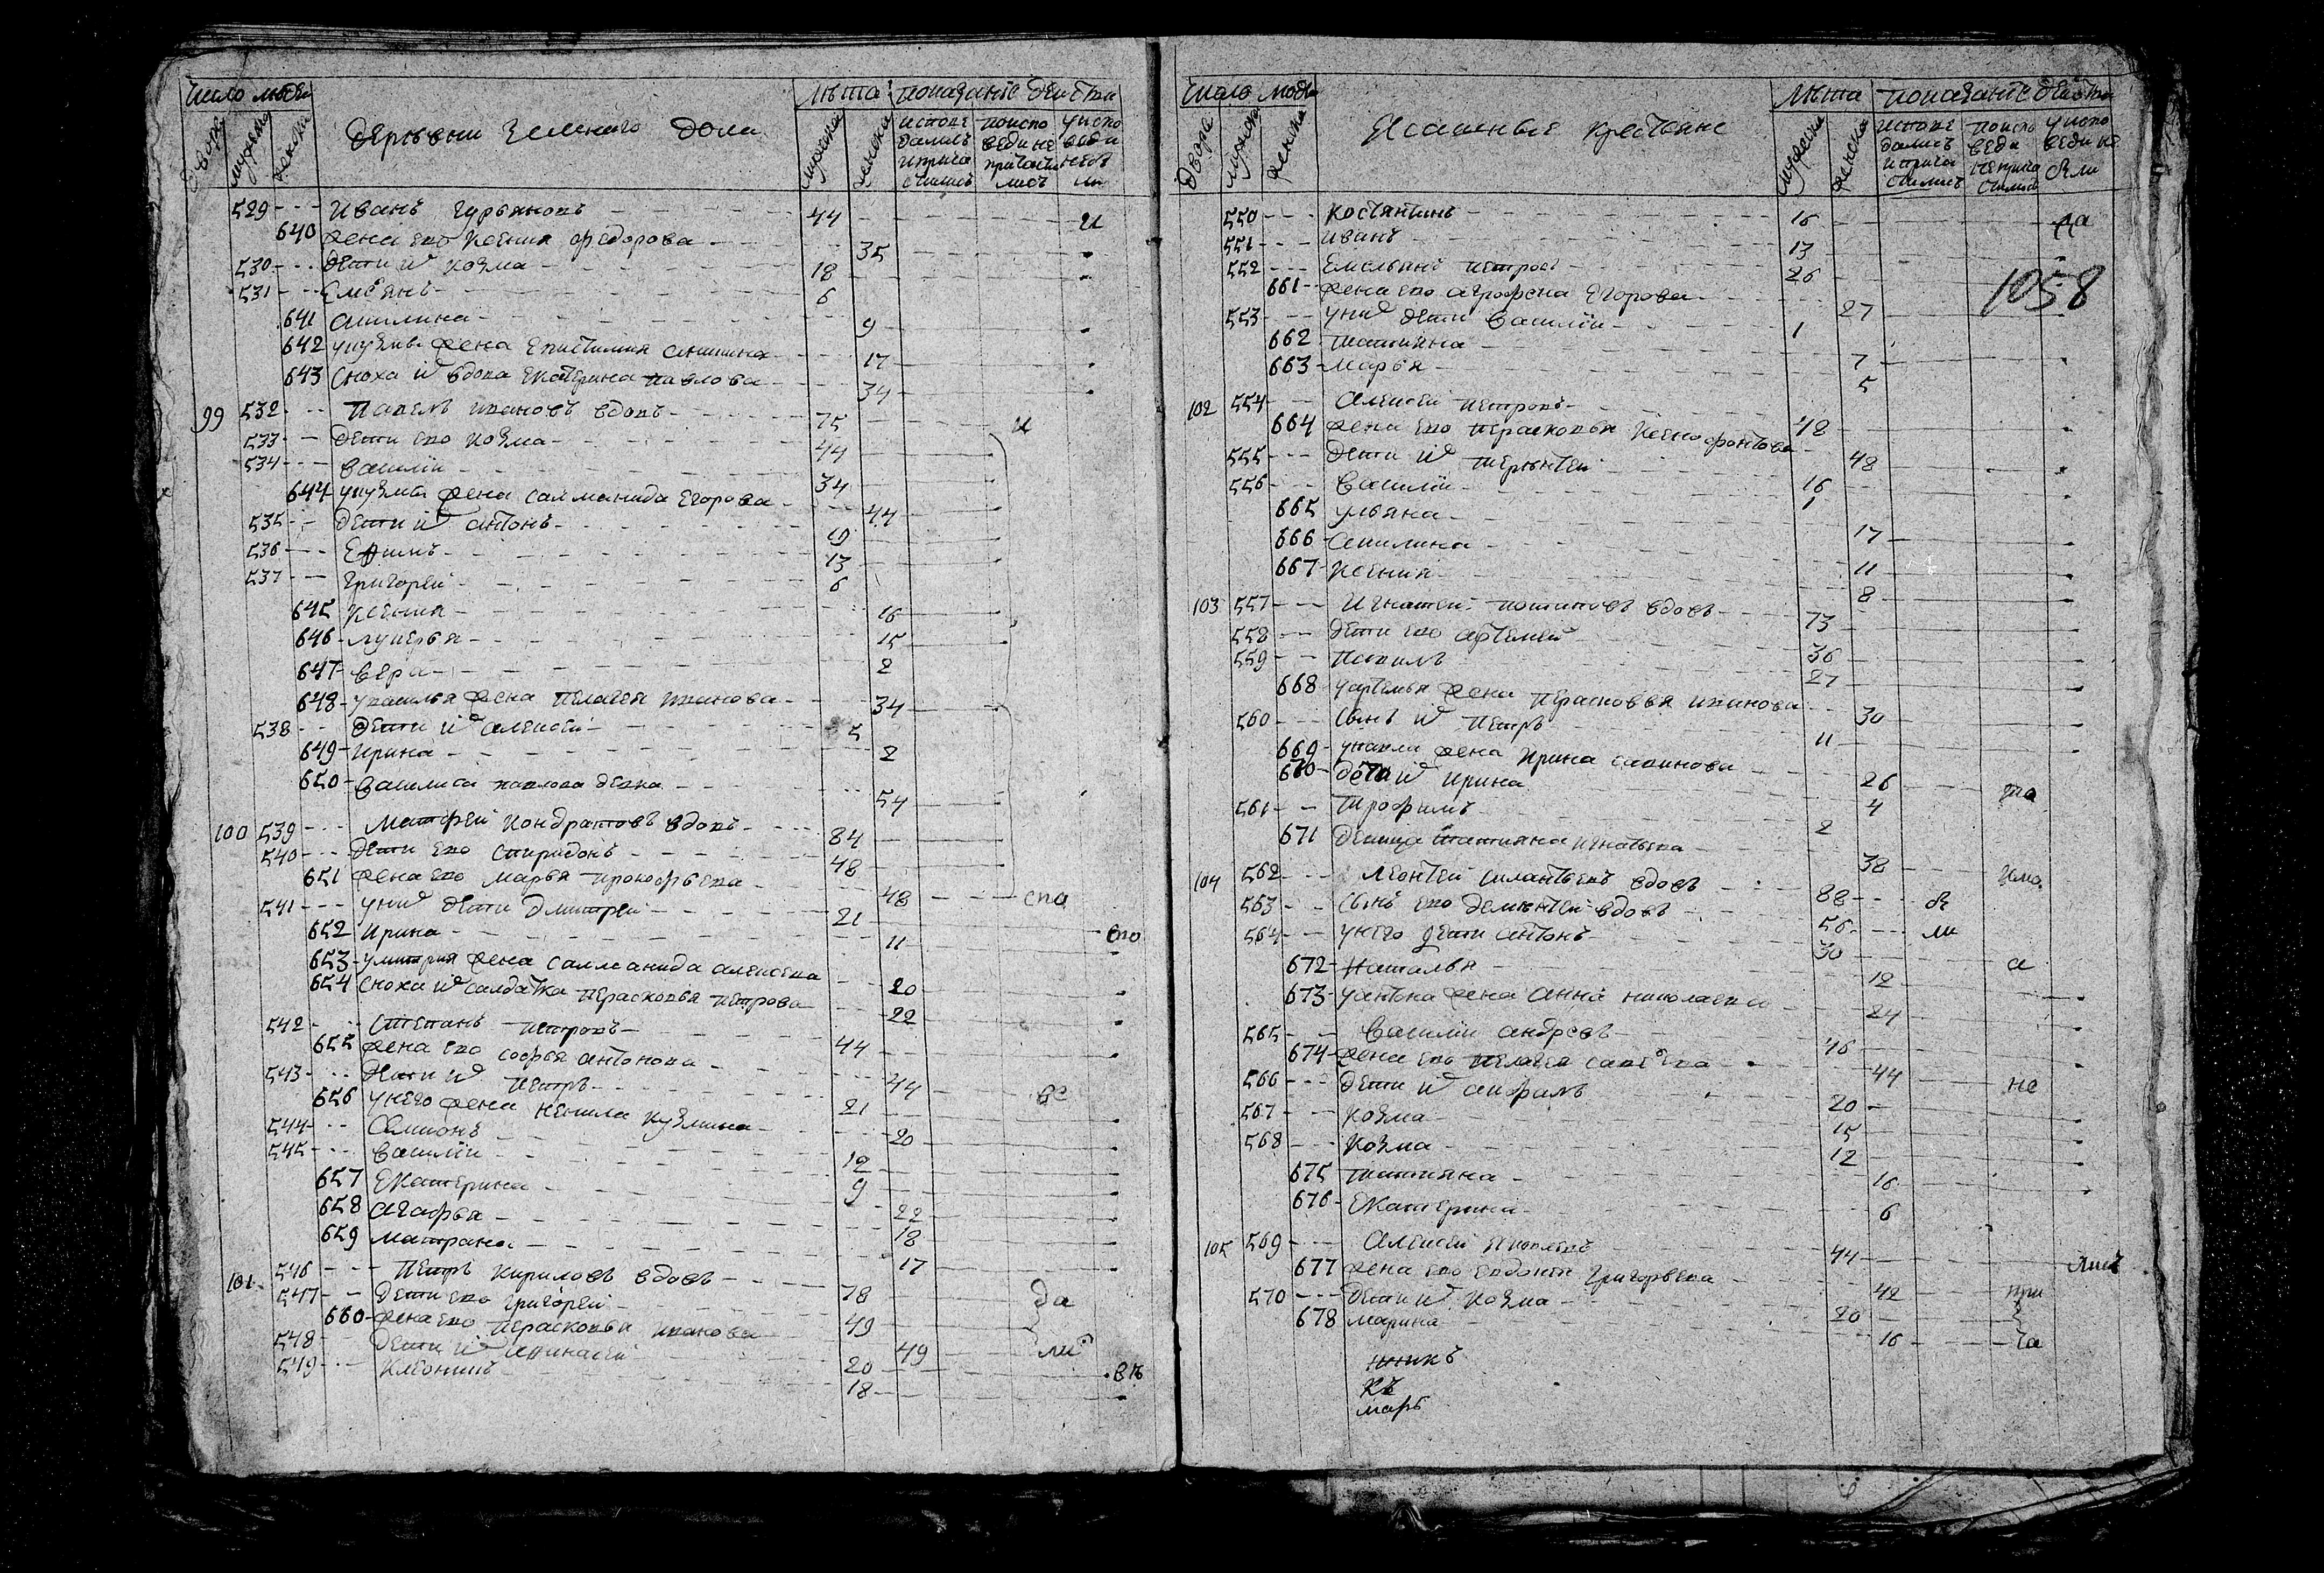 Число людей
деревни Зеленаго дола
Лѣта показаніе действа
двора мужеска женска
мужеска женска
испове дались и прича стились
поиспо веди не причасти лись
у испо веди не бы ли
529 Иванъ Гурьяновъ 44 и
640 жена его Ксения федорова 35
530 дети их Козма 18
531 Емельянъ 6
641 акилина 9
642 укузмы жена Епистимия 17
643 Сноха их вдова Екатерина павлова 34
99 532 Павелъ ивановъ вдовъ 75 и
533 дети его Козма 44
534 василий 34
644 укузмы жена Саломанида Егорова 44
535 дети их антонъ 19
536 Ефимъ 13
537 григорей 6
645 Ксения 16
646 лукерья 15
647 вера 2
648 увасилья жена пелагея иванова 34
538 дети их алексей 5
649 Ирина 2
650 василиса павлова девка 54
100 539 Матфей Кондратовъ вдовъ 84
540 дети его Спиридонъ 48
651 жена его Марья прокофьева 48 спо
541 у них дети Дмитрей 21
652 Ирина 11 вто
653 умитрия жена Саломанида алексева 20
654 Сноха их салдатка перасковья петрова 22
542 Степанъ петровъ 44
655 жена его софья антонова 44
543 дети их петръ 21 ве
656 у него жена Ненила Кузмина 20
544 Семионъ 12
545 василий 9
657 Екатерина 22
658 агафья 18
659 матрана 17
101 546 петръ Кириловъ вдовъ 78
547 дети его григорей 49 да
660 жена его перасковья иванова 49 ли
548 дети их 20
549 18 въ
Число людей
Ясашныя крестьяне
Лѣта показание действа
двора мужеска женска
мужеска женска
испове дались и прича стились
поиспо веди неприча стились
у испо веди не были
550 Костянтинъ 16
551 Иванъ 13
552 Емельянъ петровъ 26
1058
661 жена его аграфена Егорова 27
553 у них дети василий 1
662 татияна 7
663 марья 5
102 554 алексей петровъ 48
664 жена его перасковья Ксенофонтова 48
555 дети их терентей 16
556 василий 1
665 ульяна 17
666 акилина 11
667 Ксения 8
103 557 Игнатей вдовъ 73
558 дети его артемей 36
559 Павилъ 27
668 уартемья жена перасковья иванова 30
560 Сынъ их петръ 11
669 упавла жена Ирина савинова 26 та
670 дети их Ирина 4
561 Трофимъ 2
671 девица татияна игнатьева 38
104 562 Леонтей силантьевъ вдовъ 88 бы
563 Сынъ его дементей вдовъ 56 ли
564 у него дети антонъ 30
672 Наталья 12 а
673 уантона жена анна николаева 24
565 василий андреевъ 46
674 жена его пелагея савельева 44 не
566 дети их 20
567 Козма 15
568 Козма 12
675 татияна 16
676 Екатерина 6
105 569 алексей яковлевъ 44 лись
677 жена его евдокия григорьева 42 при
570 дети их Козма 20
678 Марина 16 ча
къ
марь